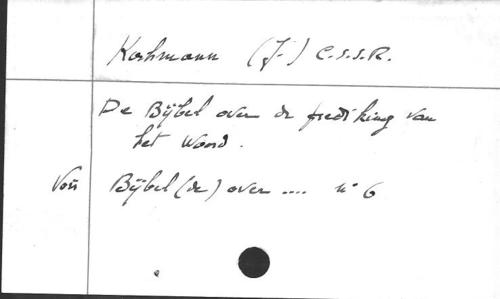 Kohmann (J.) C.S.S.R.
De Bijbel over de prediking van
het Woord.
Voir Bijbel (de) over .... n° 6